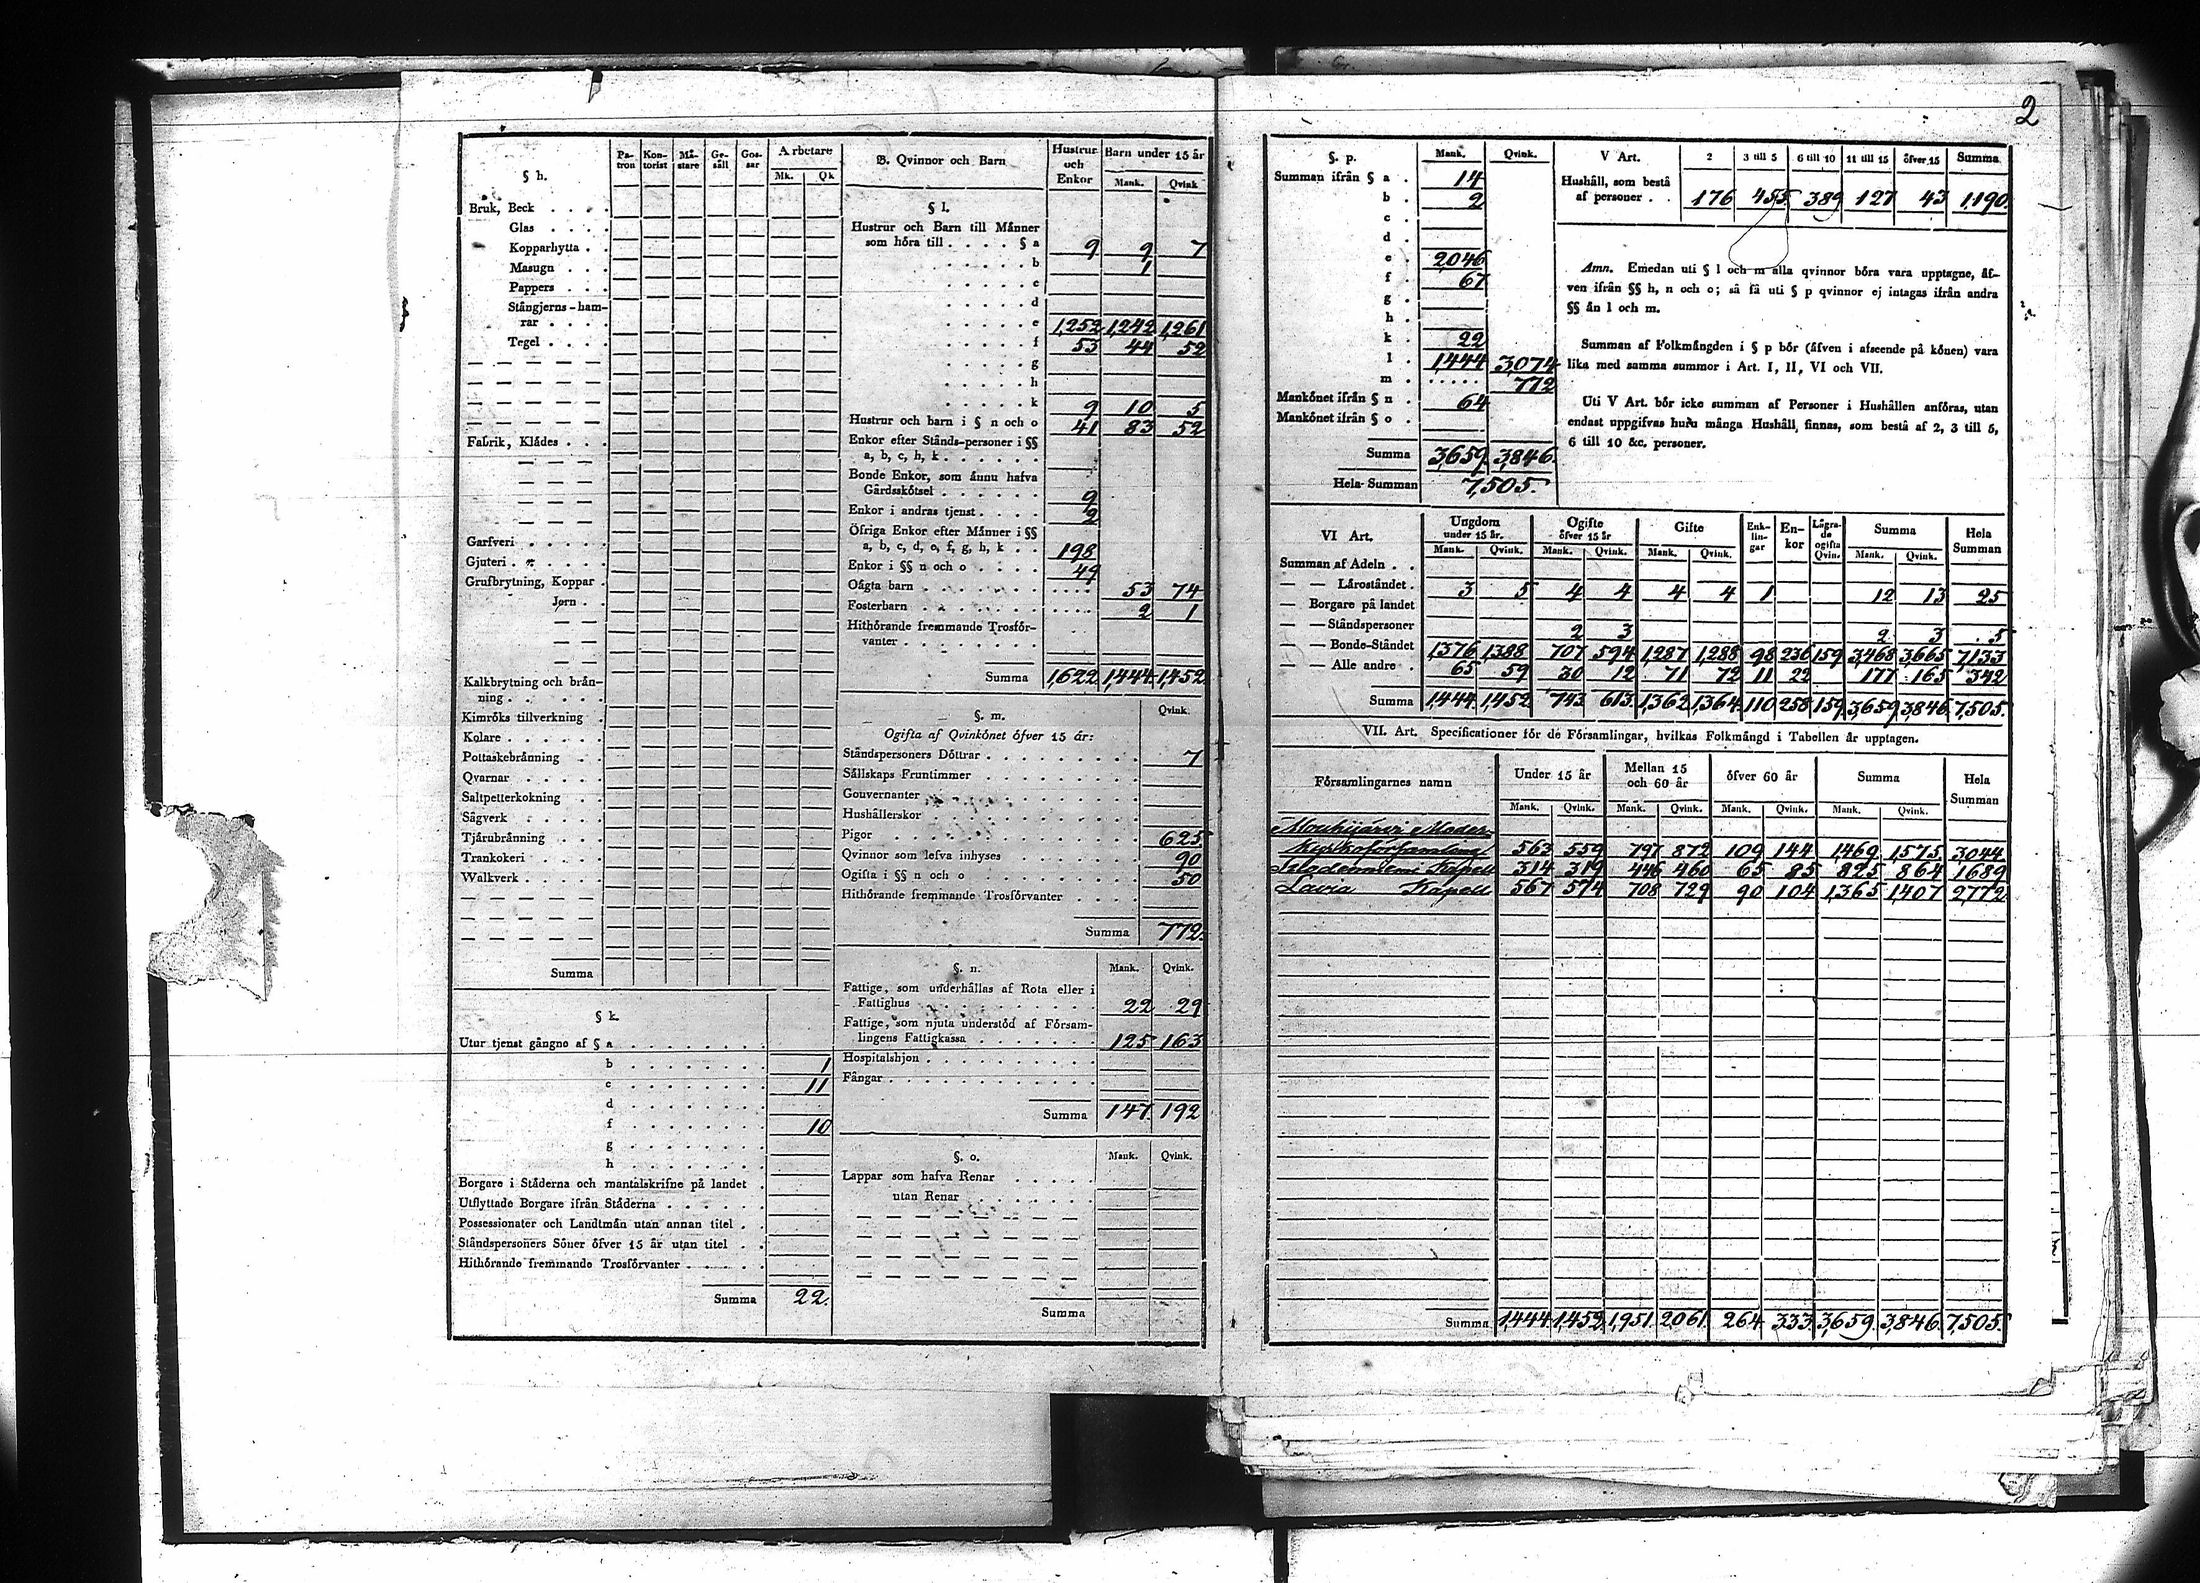 2
§ h. Pa-tron Kon-torist Mä-stare Ge-säll Gos-sar Arbetare Mk. Qk
Bruk, Beck . . . .
Glas . . . .
Kopparhytta . .
Masugn . . .
Pappers . . .
Stångjerns-ham-
rar . . . .
Tegel . . . .
Fabrik, Klådes . . .
Garfveri . . . . .
Gjuteri . . . . .
Grufbrytning, Koppar .
Jørn . .
Kalkbrytning och brån-
ning . . . . . .
Kimröks tillverkning .
Kolare . . . . . .
Pottaskebrånning . .
Qvarnar . . . . .
Saltpetterkokning . .
Sågverk . . . . .
Tjårubrånning . . .
Trankokeri . . . .
Walkverk . . . . .
Summa
§ k.
Utur tjenst gångne af § a . . . . . . .
b . . . . . . . 1
c . . . . . . . 11
d . . . . . . .
f . . . . . . . 10
g . . . . . . .
h . . . . . . .
Borgare i Ståderna och mantalskrifne på landet .
Utflyttade Borgare ifrån Ståderna . . . . . .
Possessionater och Landtmån utan annan titel . .
Ståndspersoners Söner öfver 15 år utan titel . .
Hithörande fremmande Trosförvanter . . . . .
Summa 22.
B. Qvinnor och Barn Hustrur och Enkor Barn under 15 år Mank. Qvink
§ l.
Hustrur och Barn till Månner
som höra till . . . . § a 9 9 7
. . . . . b 1
. . . . . c
. . . . . d
. . . . . e 1,252 1,242 1,261
. . . . . f 53 44 52
. . . . . g
. . . . . h
. . . . . k 9 10 5
Hustrur och barn i § n och o 41 83 52
Enkor efter Stånds-personer i §§
a, b, c, h, k . . . . . .
Bonde Enkor, som ånnu hafva
Gårdsskötsel . . . . . . 9
Enkor i andras tjenst . . . . 2
Öfriga Enkor efter Månner i §§
a, b, c, d, e, f, g, h, k . . 198
Enkor i §§ n och o . . . . 49
Oågta barn . . . . . . . . 53 74
Fosterbarn . . . . . . . . 2 1
Hithörande fremmande Trosför-
vanter . . . . . . . .
Summa 1,622 1,444. 1,452
§. m. Qvink.
Ogifta af Qvinkönet öfver 15 år:
Ståndspersoners Döttrar . . . . . . . . 7
Sållskaps Fruntimmer . . . . . . . . .
Gouvernanter . . . . . . . . . . . .
Hushållerskor . . . . . . . . . . . .
Pigor . . . . . . . . . . . . . . 625
Qvinnor som lefva inhyses . . . . . . . 90
Ogifta i §§ n och o . . . . . . . . . 50
Hithörande fremmande Trosförvanter . . . .
Summa 772.
§. n. Mank. Qvink.
Fattige, som underhållas af Rota eller i
Fattighus . . . . . . . . . . 22 29
Fattige, som njuta understöd af Försam-
lingens Fattigkassa . . . . . . . 125 163
Hospitalshjon . . . . . . . . . . .
Fångar . . . . . . . . . . . . .
Summa 147. 192
§. o. Mank. Qvink.
Lappar som hafva Renar . . . . .
utan Renar . . . . . . .
Summa
§. p. Mank. Qvink.
Summan ifrån § a . 14
b . 2
c .
d .
e . 2,046
f . 67
g .
h .
k . 22
l . 1,444 3,074
m . . . . . . 772
Mankönet ifrån § n . 64
Mankönet ifrån § o .
Summa 3,659 3,846.
Hela Summan 7,505.
V Art. 2 3 till 5 6 till 10 11 till 15 öfver 15 Summa
Hushåll, som bestå
af personer . . 176 455 389 127 43 1,190.
Anm. Emedan uti § l och m alla qvinnor böra vara upptagne, åf-
ven ifrån §§ h, n och o; så få uti § p qvinnor ej intagas ifrån andra
§§ ån l och m.
Summan af Folkmångden i § p bör (åfven i afseende på könen) vara
lika med samma summor i Art. I, II, VI och VII.
Uti V Art. bör icke summan af Personer i Hushållen anföras, utan
endast uppgifvas huru många Hushåll finnas, som bestå af 2, 3 till 5,
6 till 10 &c. personer.
VI Art. Ungdom under 15 år. Ogifte öfver 15 år Gifte Enk-lin-gar En-kor Lågra-de ogifta Qvin. Summa Hela Summan
Mank. Qvink. Mank. Qvink. Mank. Qvink. Mank. Qvink.
Summan af Adeln . .
— — Låroståndet . 3 5 4 4 4 4 1 12 13 25
— Borgare på landet
— — Ståndspersoner 2 3 2 3 5
— — Bonde-Ståndet 1,376 1,388 707 594 1,287 1,288 98 236 159 3,468 3,665 7,133
— — Alle andre . 65 59 30 12 71 72 11 22 177 165 342
Summa 1,444. 1,452 743 613. 1,362 1,364. 110 258 159 3,659 3,846 7,505.
VII. Art. Specificationer för de Församlingar, hvilkas Folkmångd i Tabellen år upptagen.
Församlingarnes namn Under 15 år Mellan 15 och 60 år öfver 60 år Summa Hela Summan
Mank. Qvink. Mank. Qvink. Mank. Qvink. Mank. Qvink.
Mouhijärvi Moder-
kyrkoförsamling 563 559 797 872 109 144 1,469 1,575. 3,044
Kapell 314 319 446 460 65 85 825 864 1,689
Lavia Kapell 567 574 708 729 90 104 1,365 1,407 2,772
Summa 1,444 1,452 1,951. 2,061. 264 333. 3,659. 3,846. 7,505.